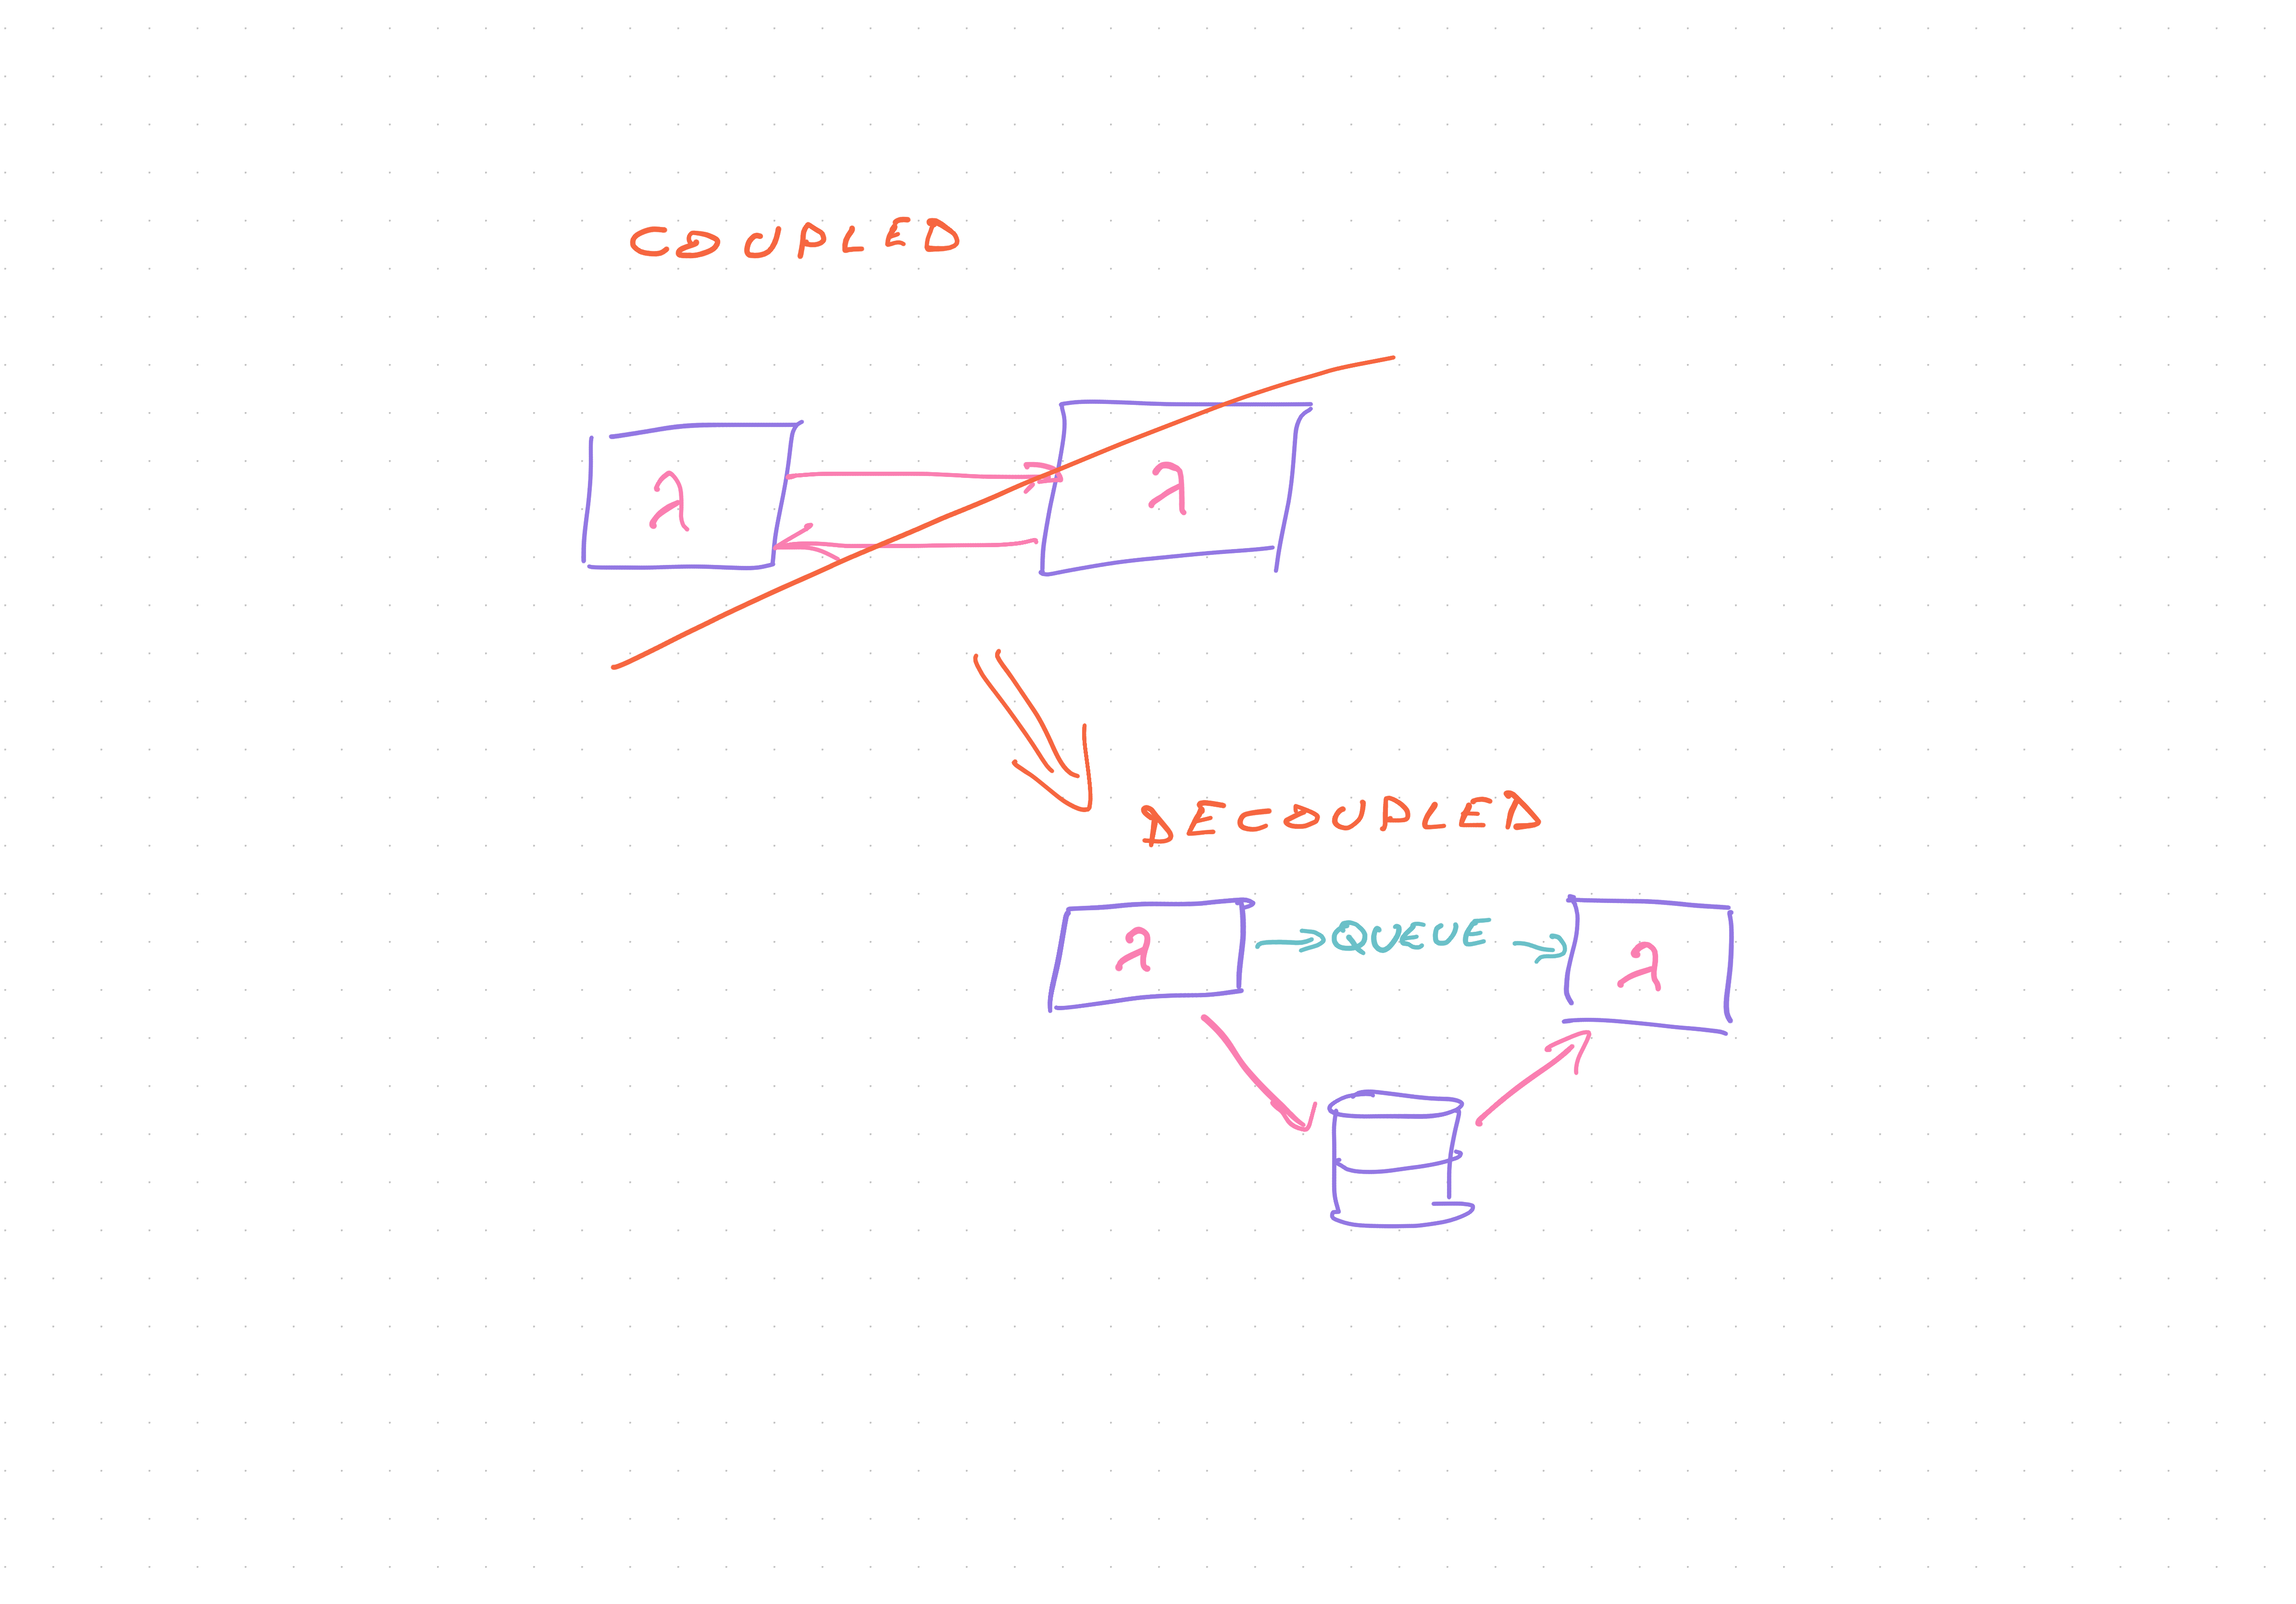 COUPLED
λ λ
DECOUPLED
λ QUEUE λ